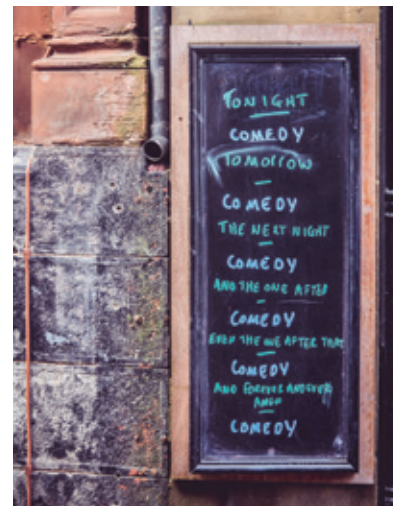 TONIGHT
COMEDY
TOMORROW
COMEDY
THE NEXT NIGHT
COMEDY
AND THE ONE AFTER
COMEDY
EVEN THE ONE AFTER THAT
COMEDY
AND FOREVER AND EVER
AMEN
COMEDY